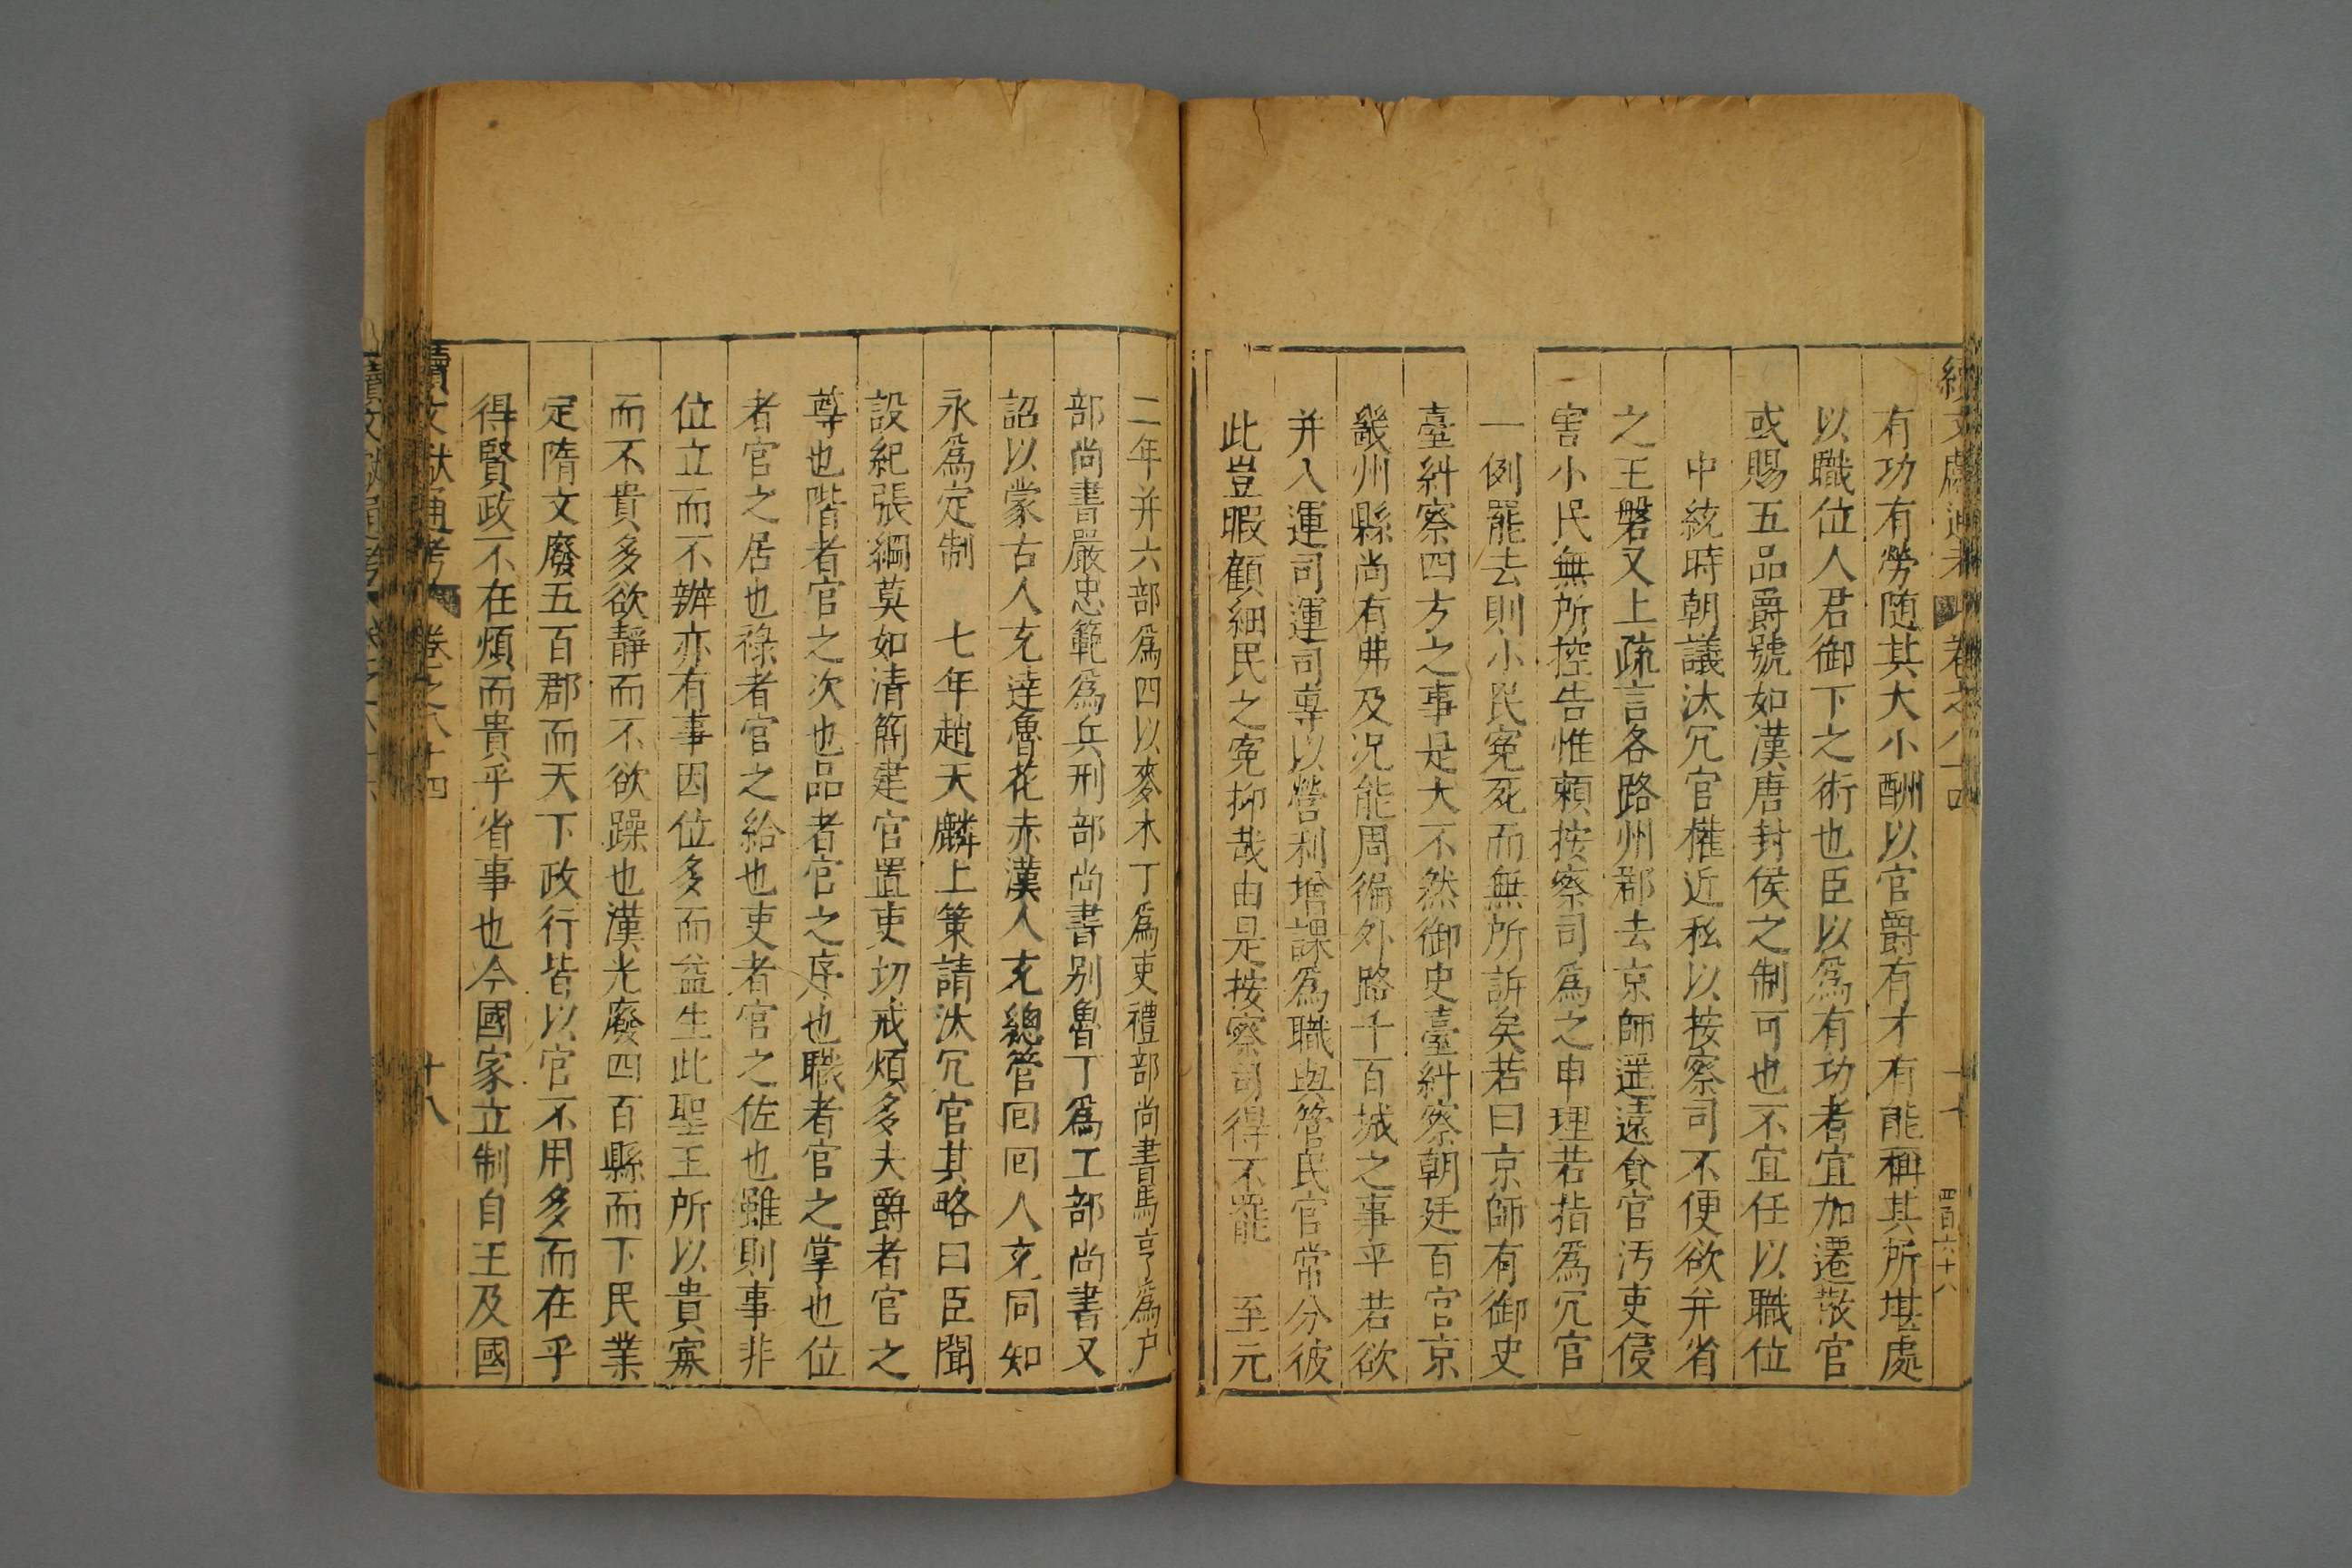 續文獻通考 卷之八十四 十七 四百六十八
有功有勞随其大小酬以官爵有才有能稱其所堪處
以職位人君御下之術也臣以爲有功者宜加遷散官
或賜五品爵號如漢唐封侯之制可也不宜任以職位
中統時朝議汰冗官權近私以按察司不便欲并省
之王磐又上疏言各路州郡去京師遥遠貪官汚吏侵
害小民無所控告惟頼按察司爲之申理若指爲冗官
一例罷去則小民寃死而無所訴矣若曰京師有御史
臺糾察四方之事是大不然御史臺糾察朝廷百官京
畿州縣尚有弗及况能周徧外路千百城之事乎若欲
并入運司運司專以營利增課爲職與管民官常分彼
此豈暇顧細民之寃抑哉由是按察司得不罷 至元
二年并六部爲四以麥木丁爲吏禮部尚書馬亨爲户
部尚書嚴忠範爲兵刑部尚書别魯丁爲工部尚書又
詔以蒙古人充達魯花赤漢人充總管回回人充同知
永爲定制 七年趙天麟上策請汰冗官其略曰臣聞
設紀張綱莫如清簡建官置吏切戒煩多夫爵者官之
尊也階者官之次也品者官之序也職者官之掌也位
者官之居也祿者官之給也吏者官之佐也雖則事非
位立而不辦亦有事因位多而益生此聖王所以貴寡
而不貴多欲靜而不欲躁也漢光廢四百縣而下民業
定隋文廢五百郡而天下政行皆以官不用多而在乎
得賢政不在煩而貴乎省事也今國家立制自王及國
續文獻通考 卷之八十四 十八
續文獻通考